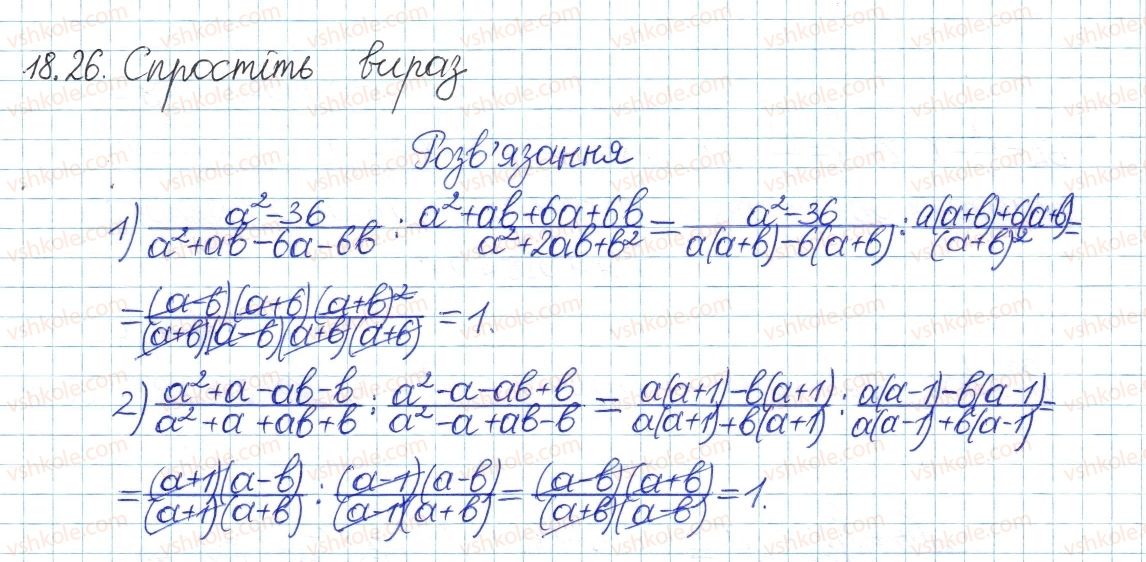 18.26. Спростіть вираз
Розв'язання
1) (a²-36)/(a²+ab-6a-6b) : (a²+ab+6a+6b)/(a²+2ab+b²) = (a²-36)/(a(a+b)-6(a+b)) : (a(a+b)+6(a+b))/(a+b)² =
= ((a-6)(a+6)(a+b)²)/((a+b)(a-6)(a+6)(a+b)) = 1.
2) (a²+a-ab-b)/(a²+a+ab+b) : (a²-a-ab+b)/(a²-a+ab-b) = (a(a+1)-b(a+1))/(a(a+1)+b(a+1)) : (a(a-1)-b(a-1))/(a(a-1)+b(a-1)) =
= ((a+1)(a-b))/((a+1)(a+b)) : ((a-1)(a-b))/((a-1)(a+b)) = ((a-b)(a+b))/((a+b)(a-b)) = 1.